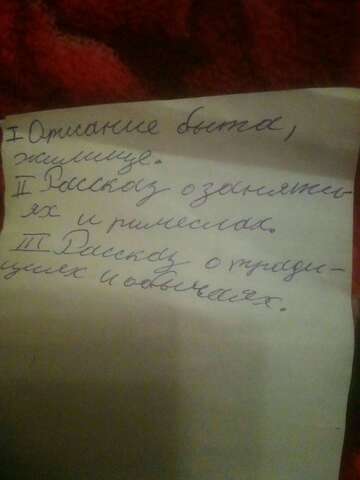 I Описание быта,
жилище.
II Рассказ о занять-
ях и ремеслах.
III Рассказ о тради-
циях и обычаях.